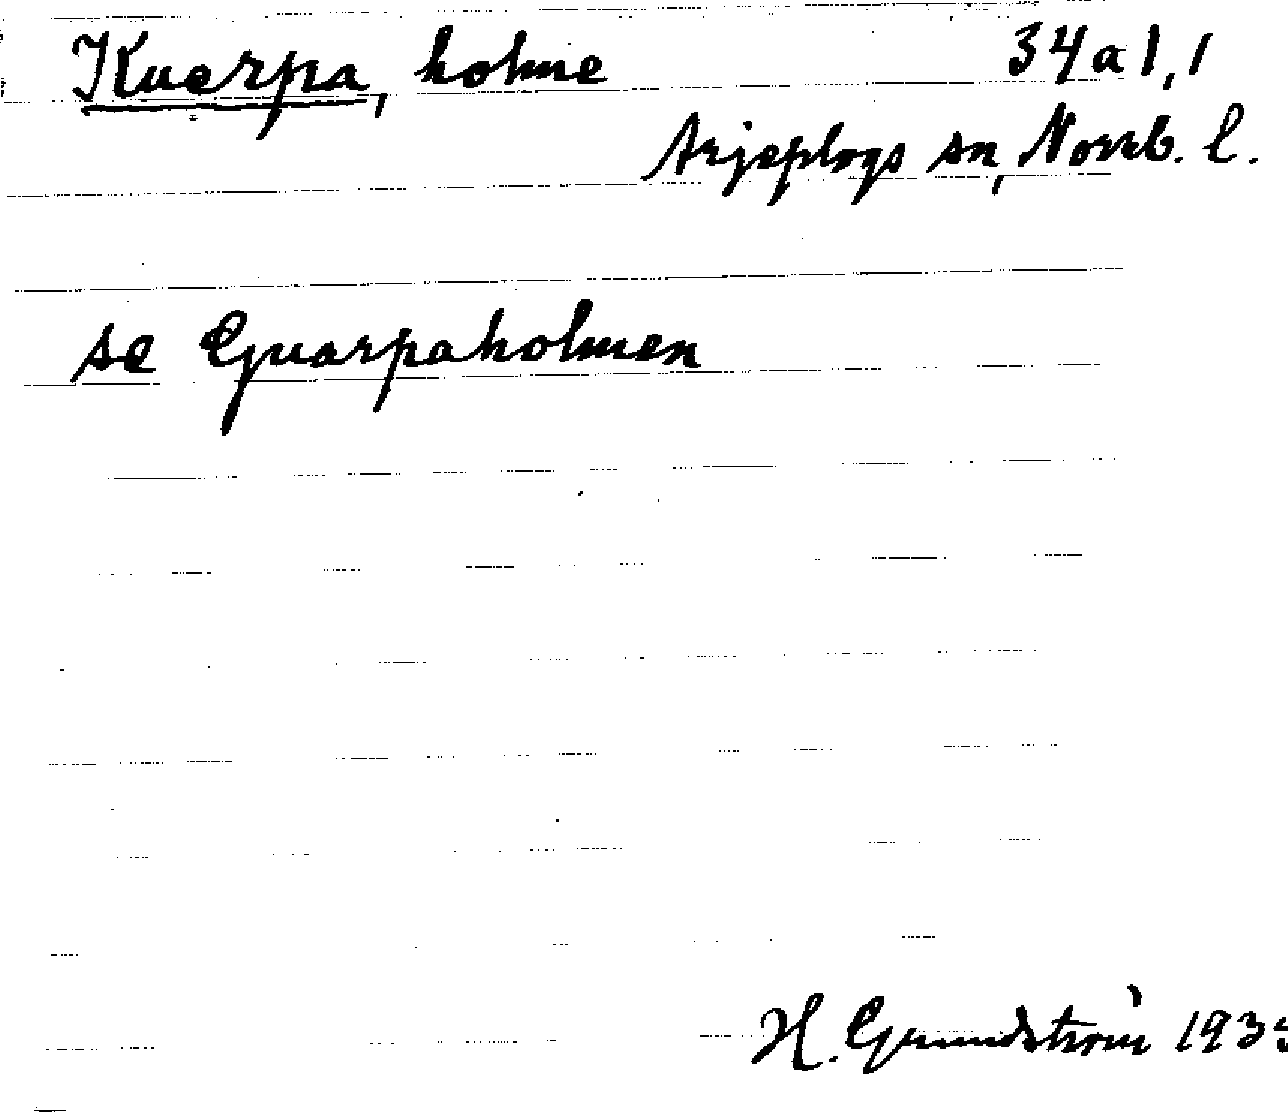 Kuerpa, holme 34 a 1,1
Arjeplogs sn, Norrb. l.
se Guarpaholmen
H. Grundström 1935